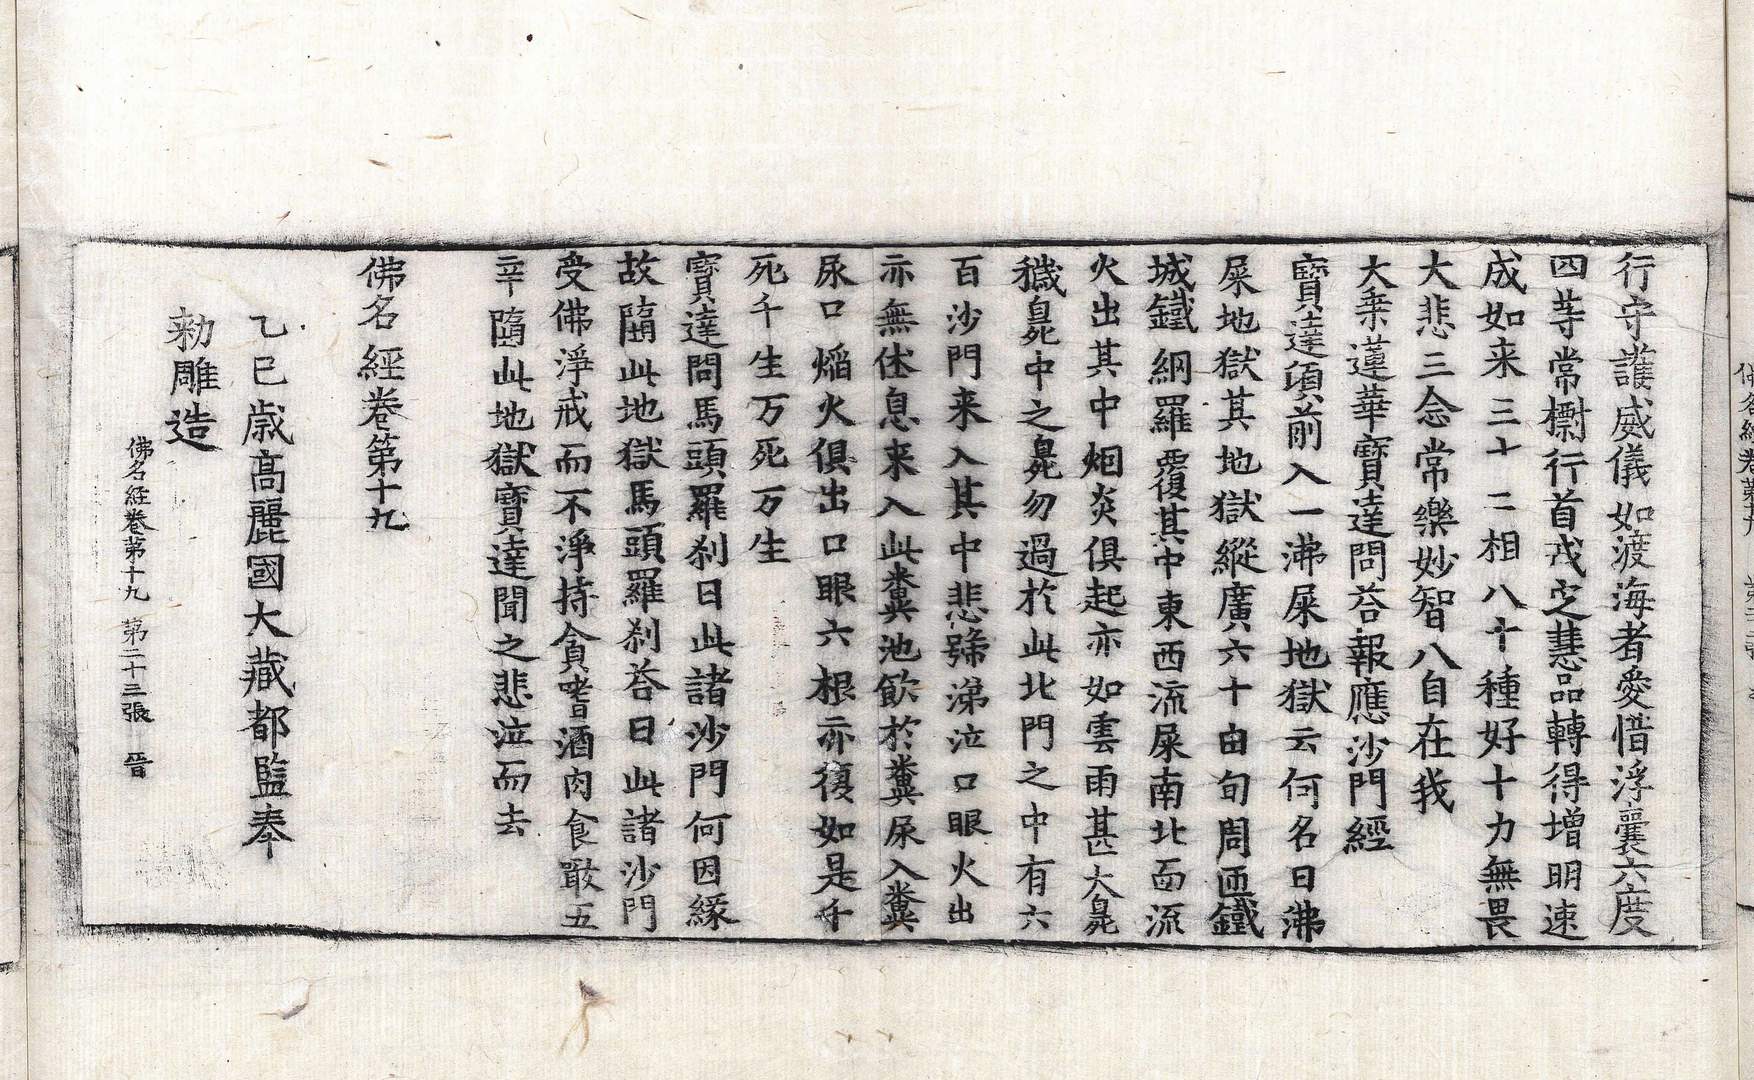 行守護威儀如渡海者愛惜浮囊六度
四等常檦行首戒定慧品轉得增明速
成如来三十二相八十種好十力無畏
大悲三念常樂妙智八自在我
大乗蓮華寶達問荅報應沙門經
寶達頃前入一沸屎地獄云何名曰沸
屎地獄其地獄縱廣六十由旬周匝鐵
城鐵網羅覆其中東西流屎南北面流
火出其中烟炎俱起亦如雲雨甚大臰
穢臰中之臰勿過於此北門之中有六
百沙門来入其中悲㘁涕泣口眼火出
亦無休息来入此糞池飲於糞尿入糞
尿口焰火俱出口眼六根亦復如是千
死千生万死万生
寶達問馬頭羅刹曰此諸沙門何因緣
故墮此地獄馬頭羅刹荅曰此諸沙門
受佛淨戒而不淨持貪嗜酒肉食噉五
辛墮此地獄寶達聞之悲泣而去
佛名經卷第十九
乙巳歲高麗國大藏都監奉
勅雕造
佛名經卷第十九　第二十三張　晉